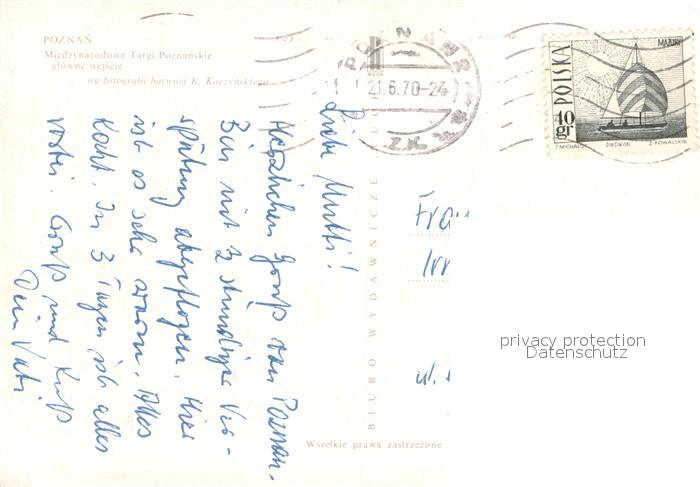 POZNAŃ
Międzynarodowe Targi Poznańskie
główne wejście
wg fotografii barwnej K. Kaczyńskiego
Liebe Mutti!
Herzlichen Gruß von Poznan.
Bin mit 2 stündiger Ver-
spätung abgeflogen. Hier
ist es sehr warm. Alles
klappt. In 3 Tagen ist alles
vorbei. Gruß und Kuß
Dein Vati
BIURO WYDAWNICZE
Wszelkie prawa zastrzeżone
POZNAŃ
21.6.70-24
POLSKA
MAZURY
40 gr
T. MICHALUK
Z. KOWALSKI
Frau
ul.
privacy protection
Datenschutz